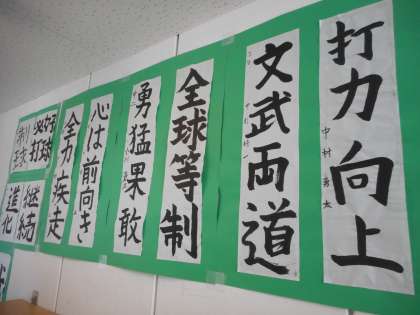 打力向上
中村 勇太
文武両道
全球等制
勇猛果敢
心は前向き
全力疾走
必打
好球
制球
継続
進化